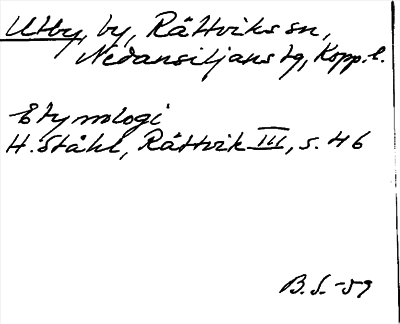 Utby, by, Rättviks sn,
Nedansiljans tg, Kopp. l.
Etymologi
H. Ståhl, Rättvik III, s. 46
B. S. -59